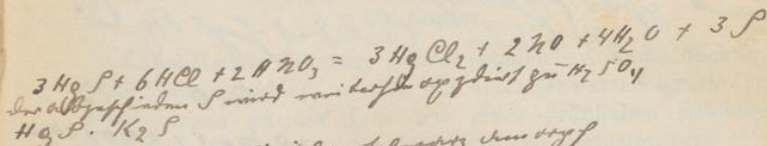 3 Hg S + 6 HCl + 2 HNO3 = 3 Hg Cl2 + 2 NO + 4 H2O + 3 S
der abgeschieden S wird weiterhin oxydirt zu H2SO4
Hg S. K2 S
schwarz amorph